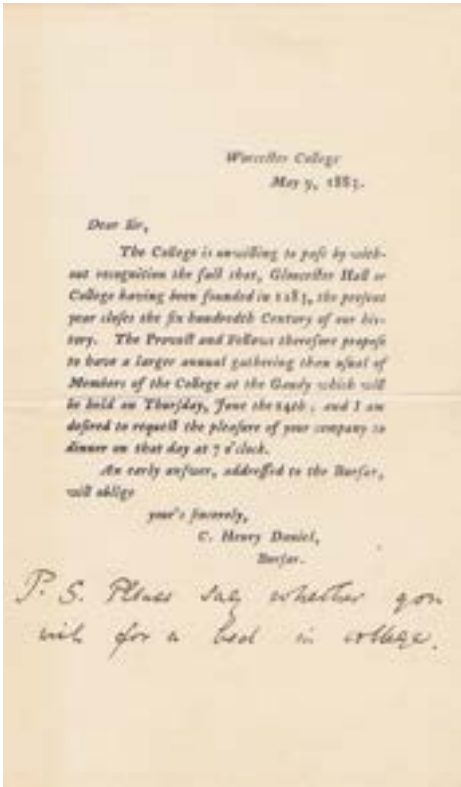 Worceſter College
May 9, 1883.
Dear Sir,
The College is unwilling to paſs by with-
out recognition the fact that, Glouceſter Hall or
College having been founded in 1283, the preſent
year cloſes the ſix hundredth Century of our hiſ-
tory. The Provoſt and Fellows therefore propoſe
to have a larger annual gathering then uſual of
Members of the College at the Gaudy which will
be held on Thurſday, June the 14th, and I am
deſired to requeſt the pleaſure of your company to
dinner on that day at 7 o'clock.
An early anſwer, addreſſed to the Burſar,
will oblige
your's ſincerely,
C. Henry Daniel,
Burſar.
P. S. Please say whether you
wish for a bed in college.